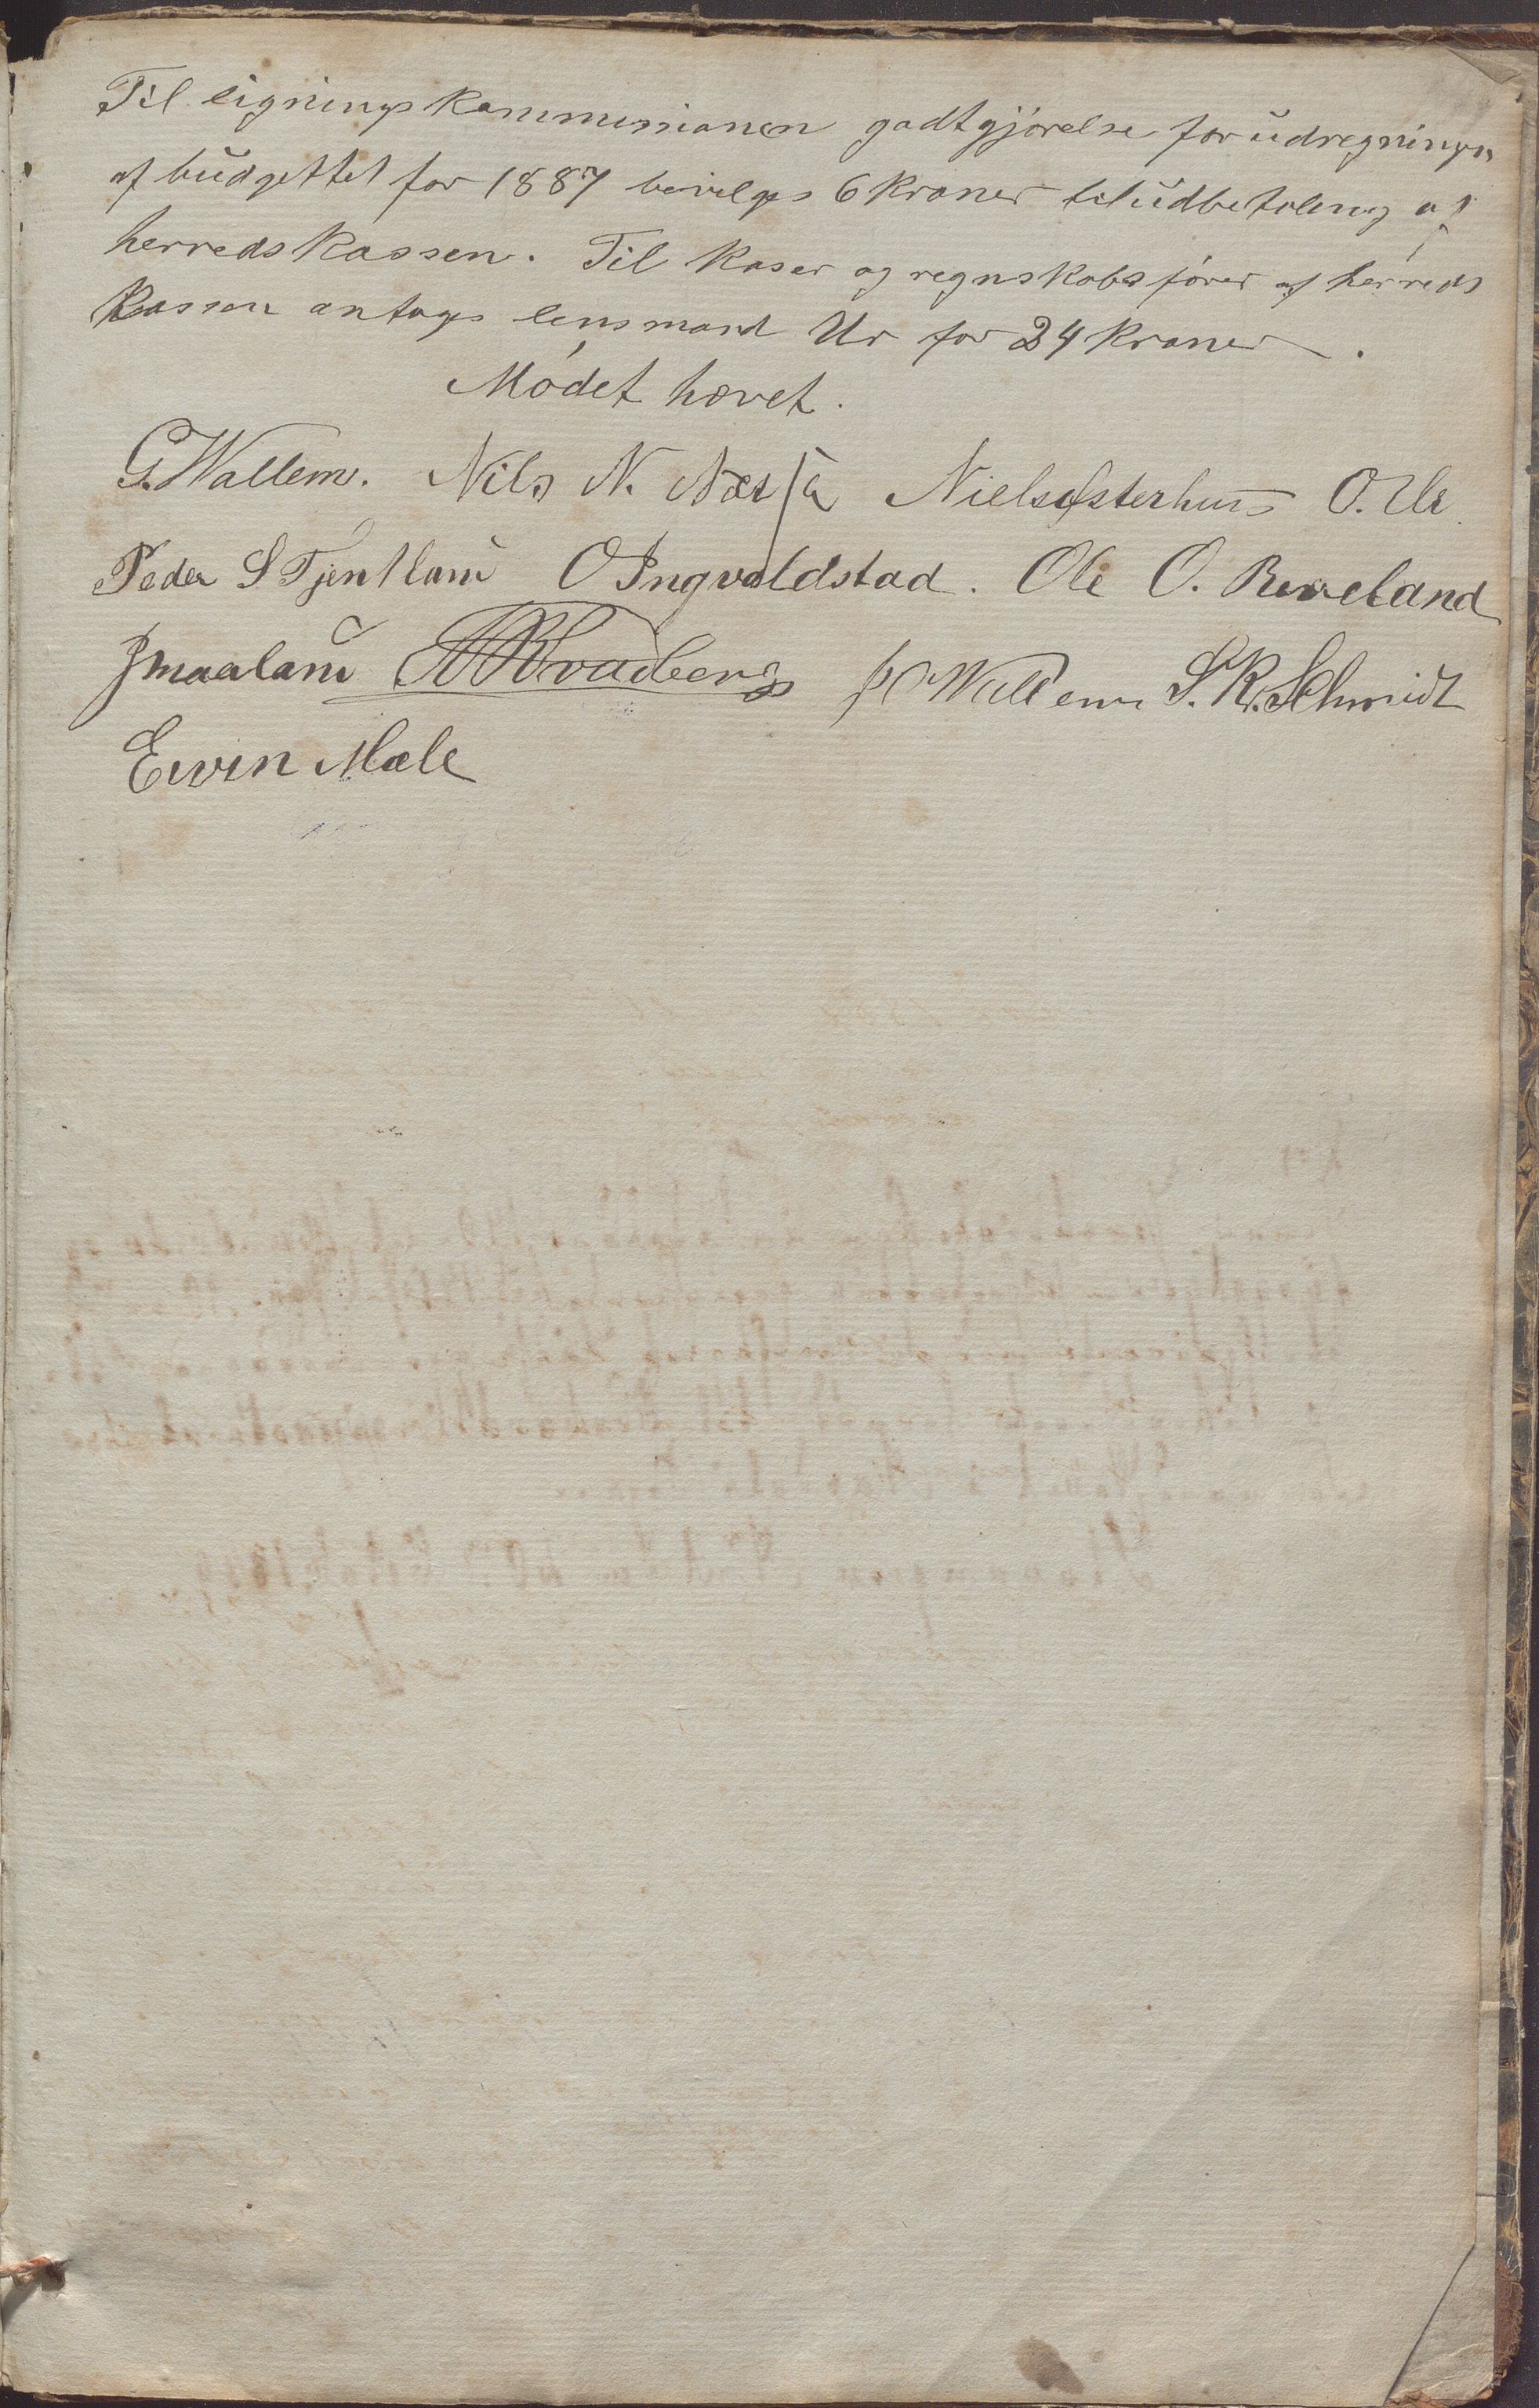 Til ligningskommusionen godtgjörelse for udregningen
af budgettet for 1887 bevilges 6 kroner til udbetaling af
herredskassen. Til kaser og regnskabsförer af herreds
kassen antages lensmand Ur for 24 kroner.
Mödet hævet.
G. Wallem. Nils N. Næsså Niels Østerhus O. Ur
Peder S Tjentland O Ingvaldstad. Ole O. Reveland
J maaland Bradberg Wallem S. K. Schmidt
Eivin Mæle